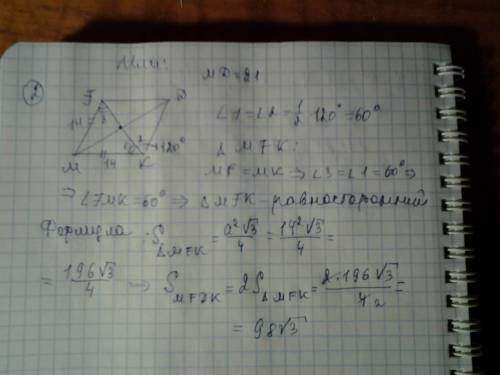 Или:
②
MD = 21
F D
14 3 2 120°
1
M 14 K
∠1 = ∠2 = 1/2 · 120° = 60°
△ MFK:
MF = MK ⇒ ∠3 = ∠1 = 60° ⇒
⇒ ∠FMK = 60° ⇒ △MFK – равносторонний
Формула S△MFK = a²√3/4 = 14²√3/4 =
= 196√3/4 → SMFDK = 2S△MFK = 2·196√3/4 2 =
= 98√3